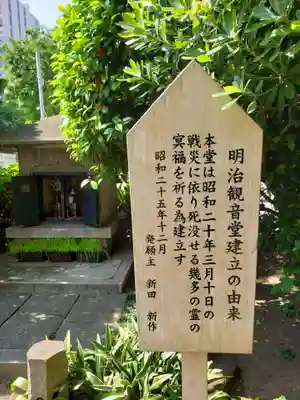 明治観音堂建立の由来
本堂は昭和二十年三月十日の
戦災に依り死没せる幾多の霊の
冥福を祈る為建立す
昭和二十五年十二月
発願主 新田 新作